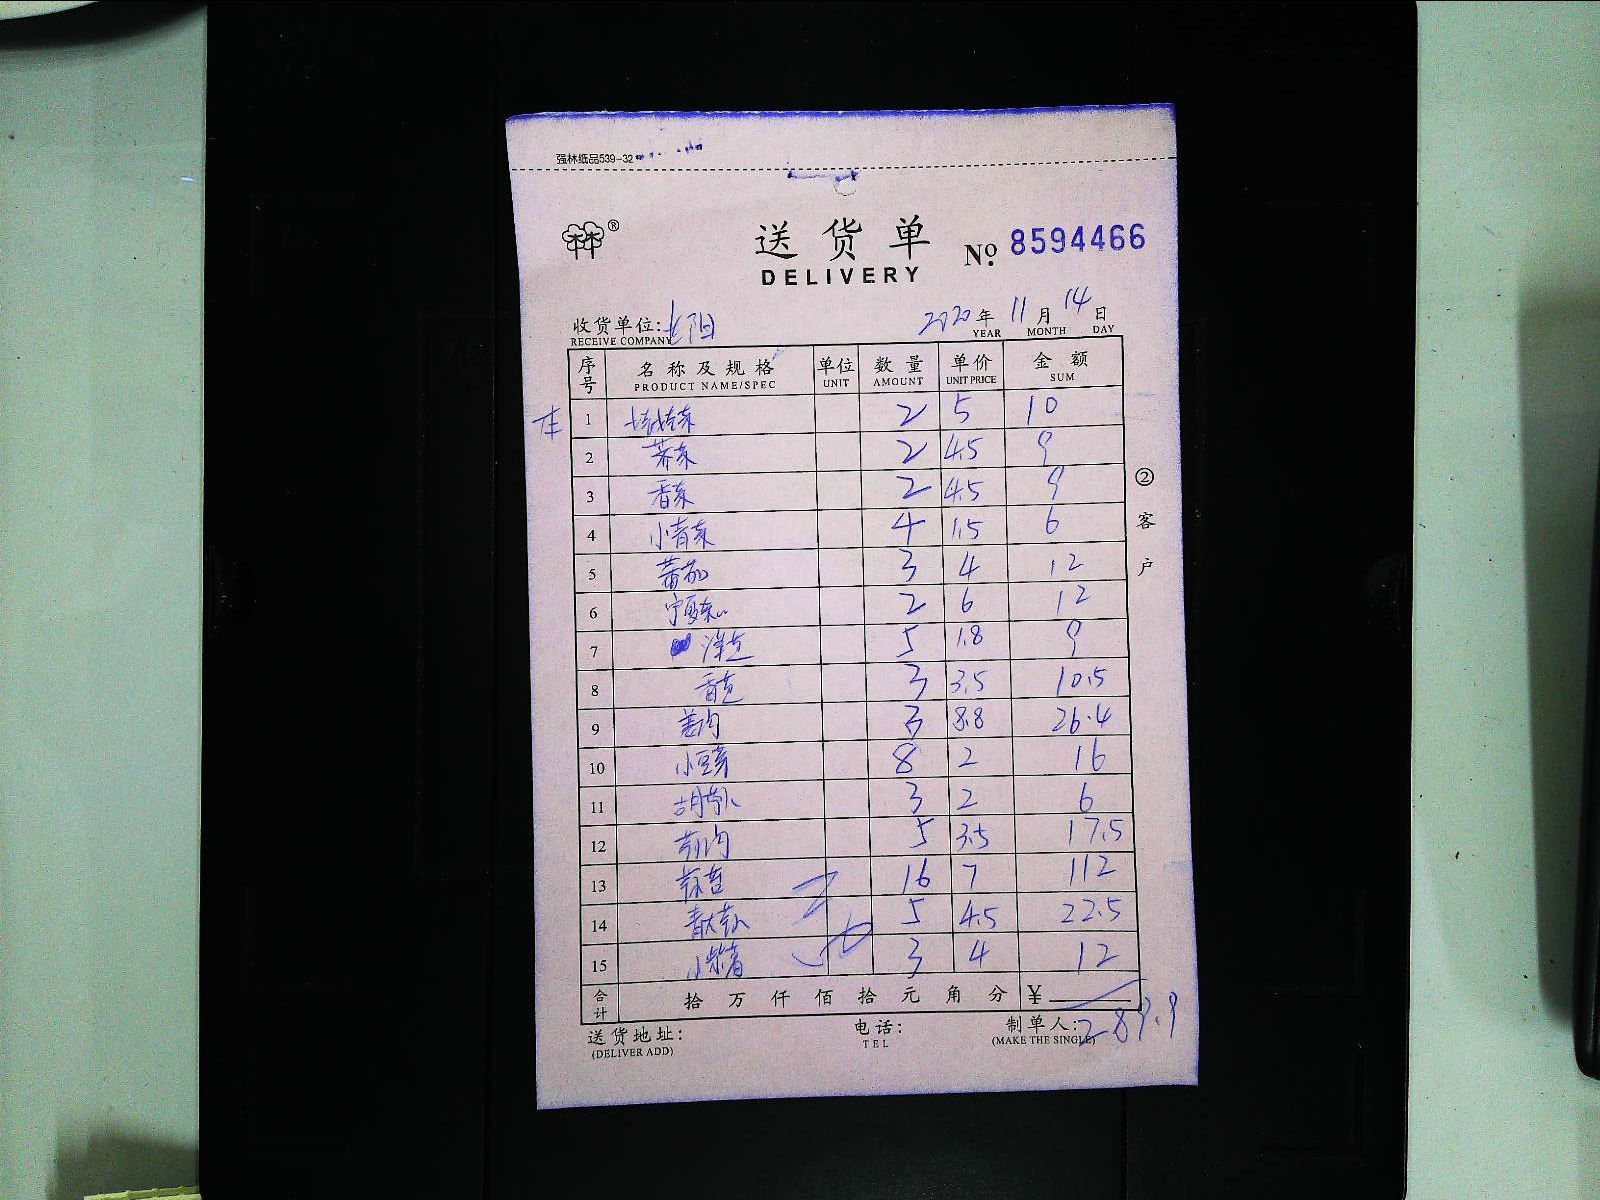 强林纸品539-32
®
送货单
DELIVERY
No. 8594466
收货单位: 长阳
RECEIVE COMPANY
2020年 11月 14日
YEAR MONTH DAY
序号 名称及规格 单位 数量 单价 金额
PRODUCT NAME/SPEC UNIT AMOUNT UNIT PRICE SUM
1 2 5 10
2 2 4.5 9
3 香菜 2 4.5 9
4 小青菜 4 1.5 6
5 蕃茄 3 4 12
6 宁夏菜心 2 6 12
7 洋芋 5 1.8 9
8 3 3.5 10.5
9 3 8.8 26.4
10 小豆芽 8 2 16
11 3 2 6
12 5 3.5 17.5
13 16 7 112
14 5 4.5 22.5
15 3 4 12
合计 拾万仟佰拾元角分 ¥
289.9
送货地址: 电话: 制单人:
(DELIVER ADD) TEL (MAKE THE SINGLE)
②客户